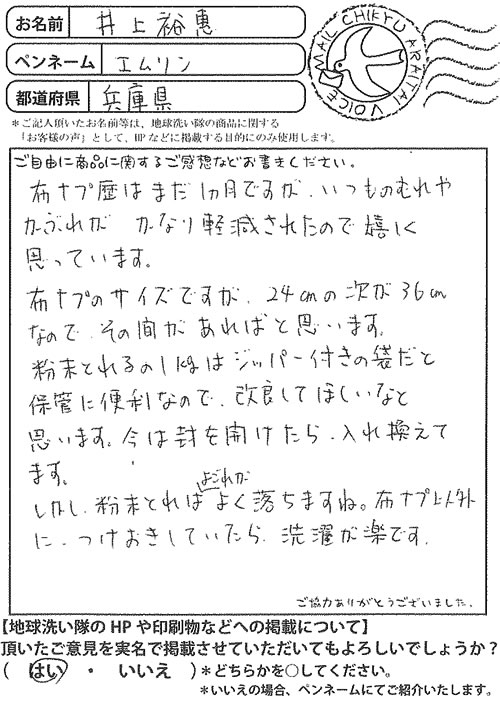 お名前 井上裕恵
MAIL CHIKYU ARAITAI VOICE
ペンネーム エムリン
都道府県 兵庫県
＊ご記入頂いたお名前等は、地球洗い隊の商品に関する
「お客様の声」として、HPなどに掲載する目的にのみ使用します。
ご自由に商品に関するご感想などお書きください。
布ナプ歴はまだ1ヵ月ですが、いつものむれや
かぶれが かなり軽減されたので嬉しく
思っています。
布ナプのサイズですが、24cmの次が36cm
なので、その間があればと思います。
粉末とれるの1kgはジッパー付きの袋だと
保管に便利なので、改良してほしいなと
思います。今は封を開けたら、入れ換えて
ます。
よごれが
しかし、粉末とれはよく落ちますね。布ナプ以外
に、つけおきしていたら、洗濯が楽です。
ご協力ありがとうございました。
【地球洗い隊のHPや印刷物などへの掲載について】
頂いたご意見を実名で掲載させていただいてもよろしいでしょうか？
（ はい ・ いいえ ）＊どちらかを○してください。
＊いいえの場合、ペンネームにてご紹介いたします。